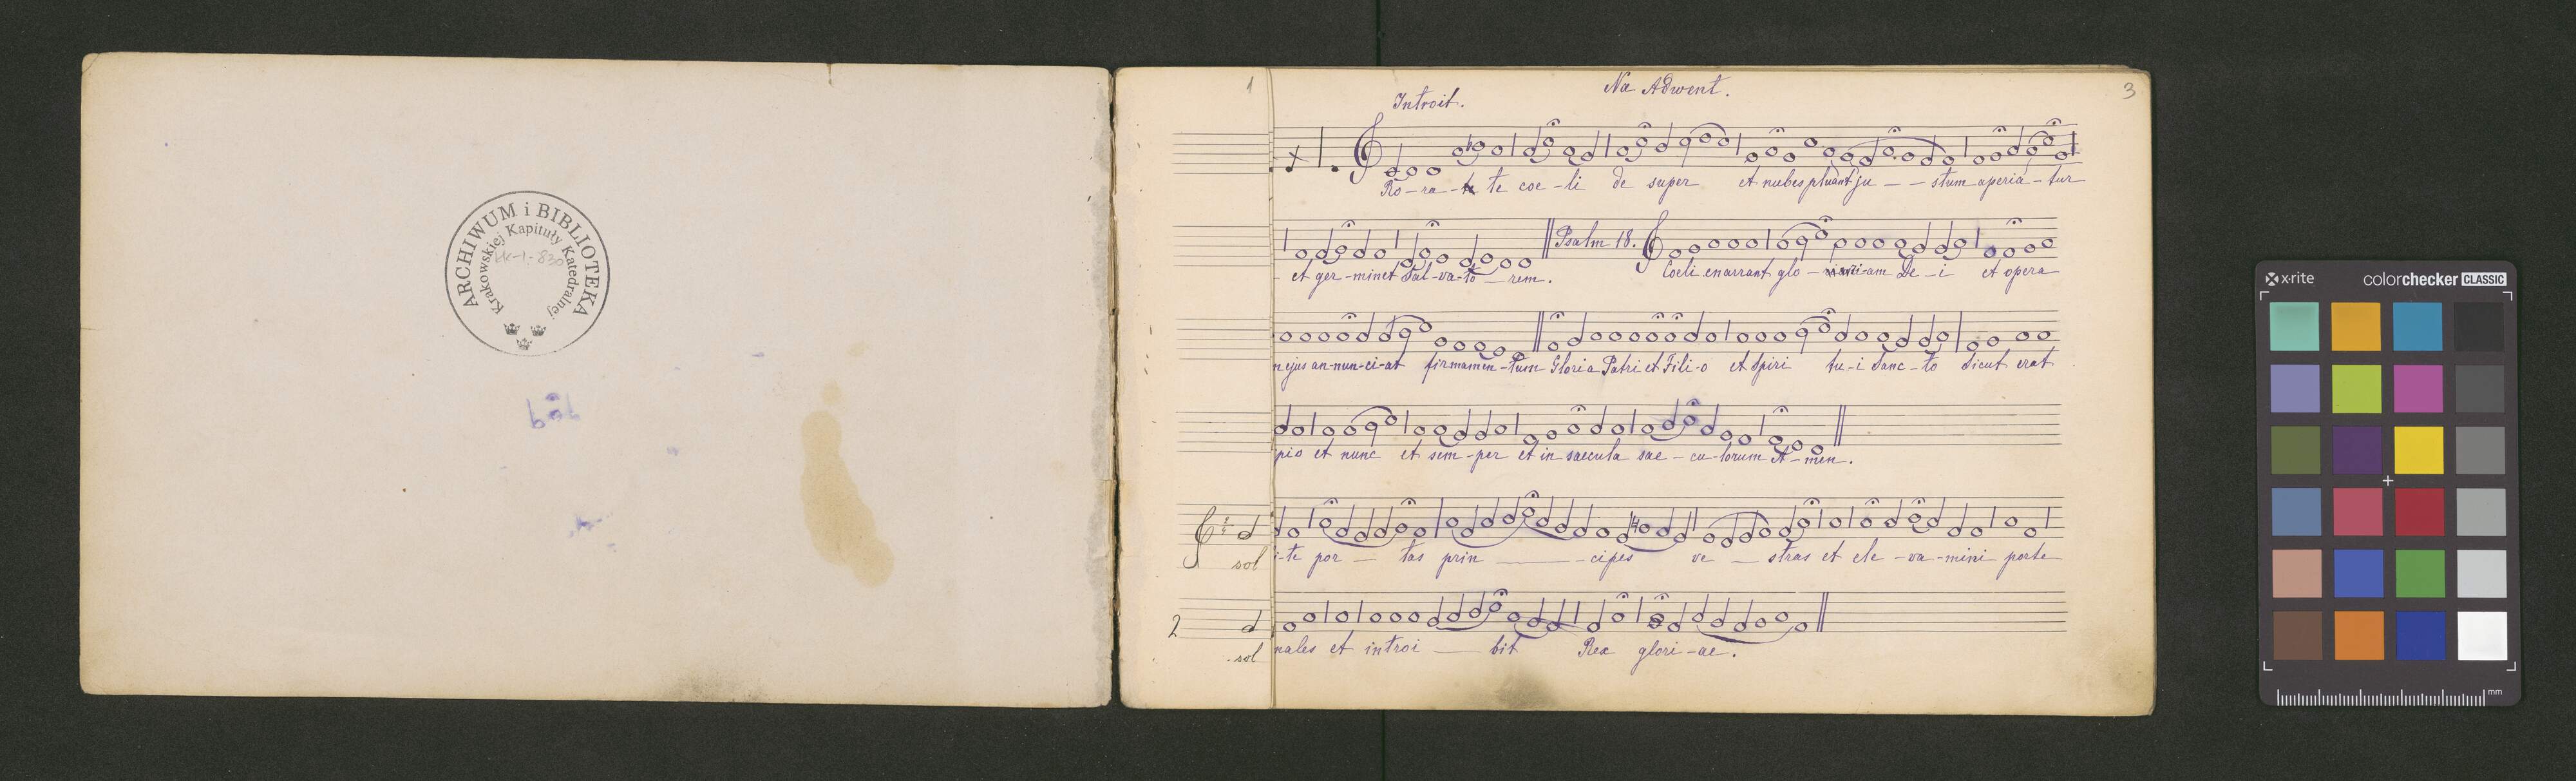 ARCHIWUM i BIBLIOTEKA
Krakowskiej Kapituły Katedralnej
KK-I-830
1
Na Adwent.
3
Introit.
Ro-ra-te coe-li de super et nubes pluant ju--stum aperia-tur
- et ger-minet Sal-va-to-rem. Psalm 18. Coeli enarrant glo-ri-am De-i et opera
n ejus an-nun-ci-at firmamen-tum Gloria Patri et Fili-o et Spiri tu-i Sanc-to Sicut erat
pio et nunc et sem-per et in saecula sae-cu-lorum A-men.
sol i-te por-tas prin--cipes ve-stras et ele-va-mini porte
2
sol nales et introi-bit Rex glori-ae.
x-rite colorchecker CLASSIC
mm